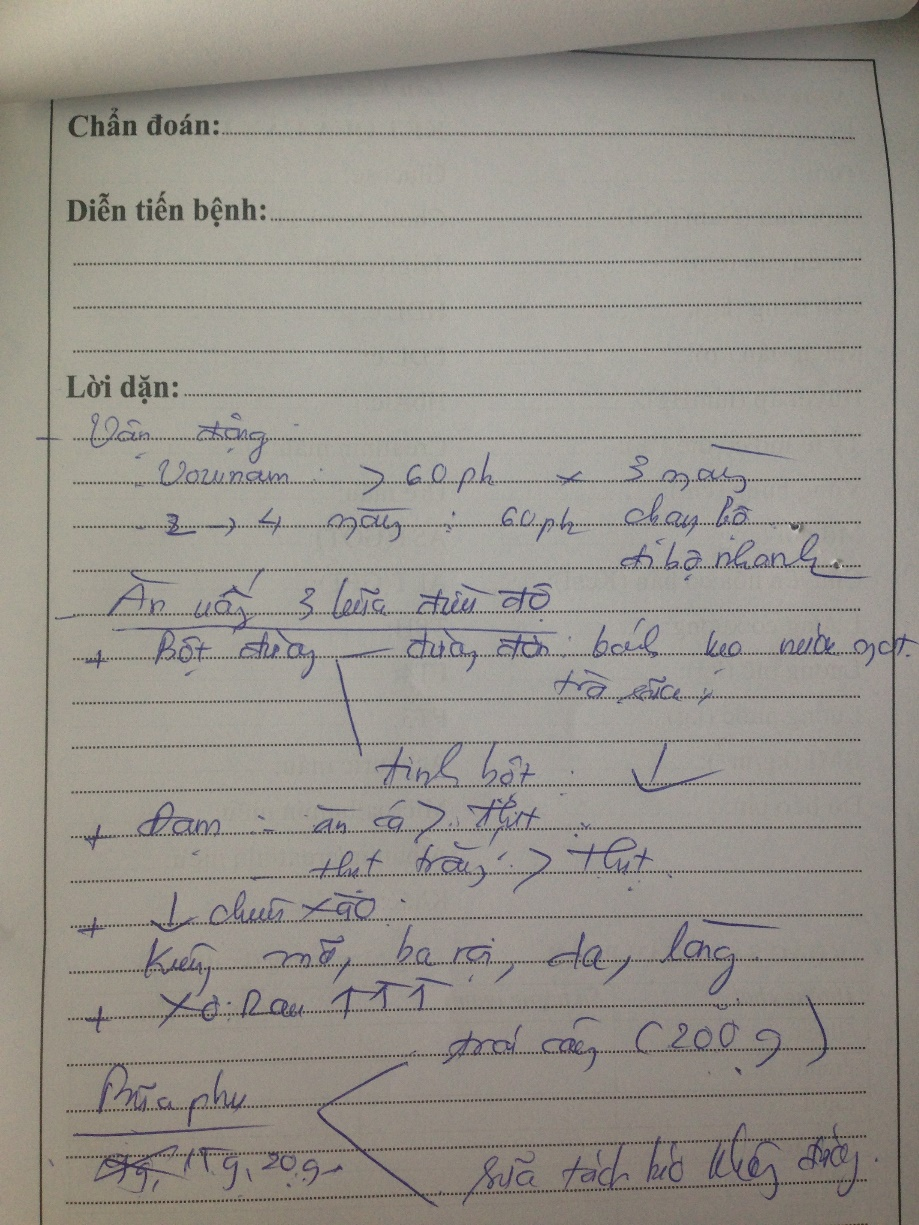 Chẩn đoán:
Diễn tiến bệnh:
Lời dặn:
- Vận động
- Vovinam : > 60 ph × 3 ngày
- 3 → 4 ngày : 60 ph chạy bộ
đi bộ nhanh
- Ăn uống 3 bữa điều độ
+ Bột đường — đường đơn : bánh kẹo nước ngọt.
trà sữa
tinh bột : ↓
+ Đạm : - ăn cá > thịt
- thịt trắng > thịt
+ ↓ chiên xào
Kiêng mỡ, ba rọi, da, lòng
+ Xơ : Rau ↑↑↑
trái cây (200 g)
Bữa phụ
20g
sữa tách béo không đường.